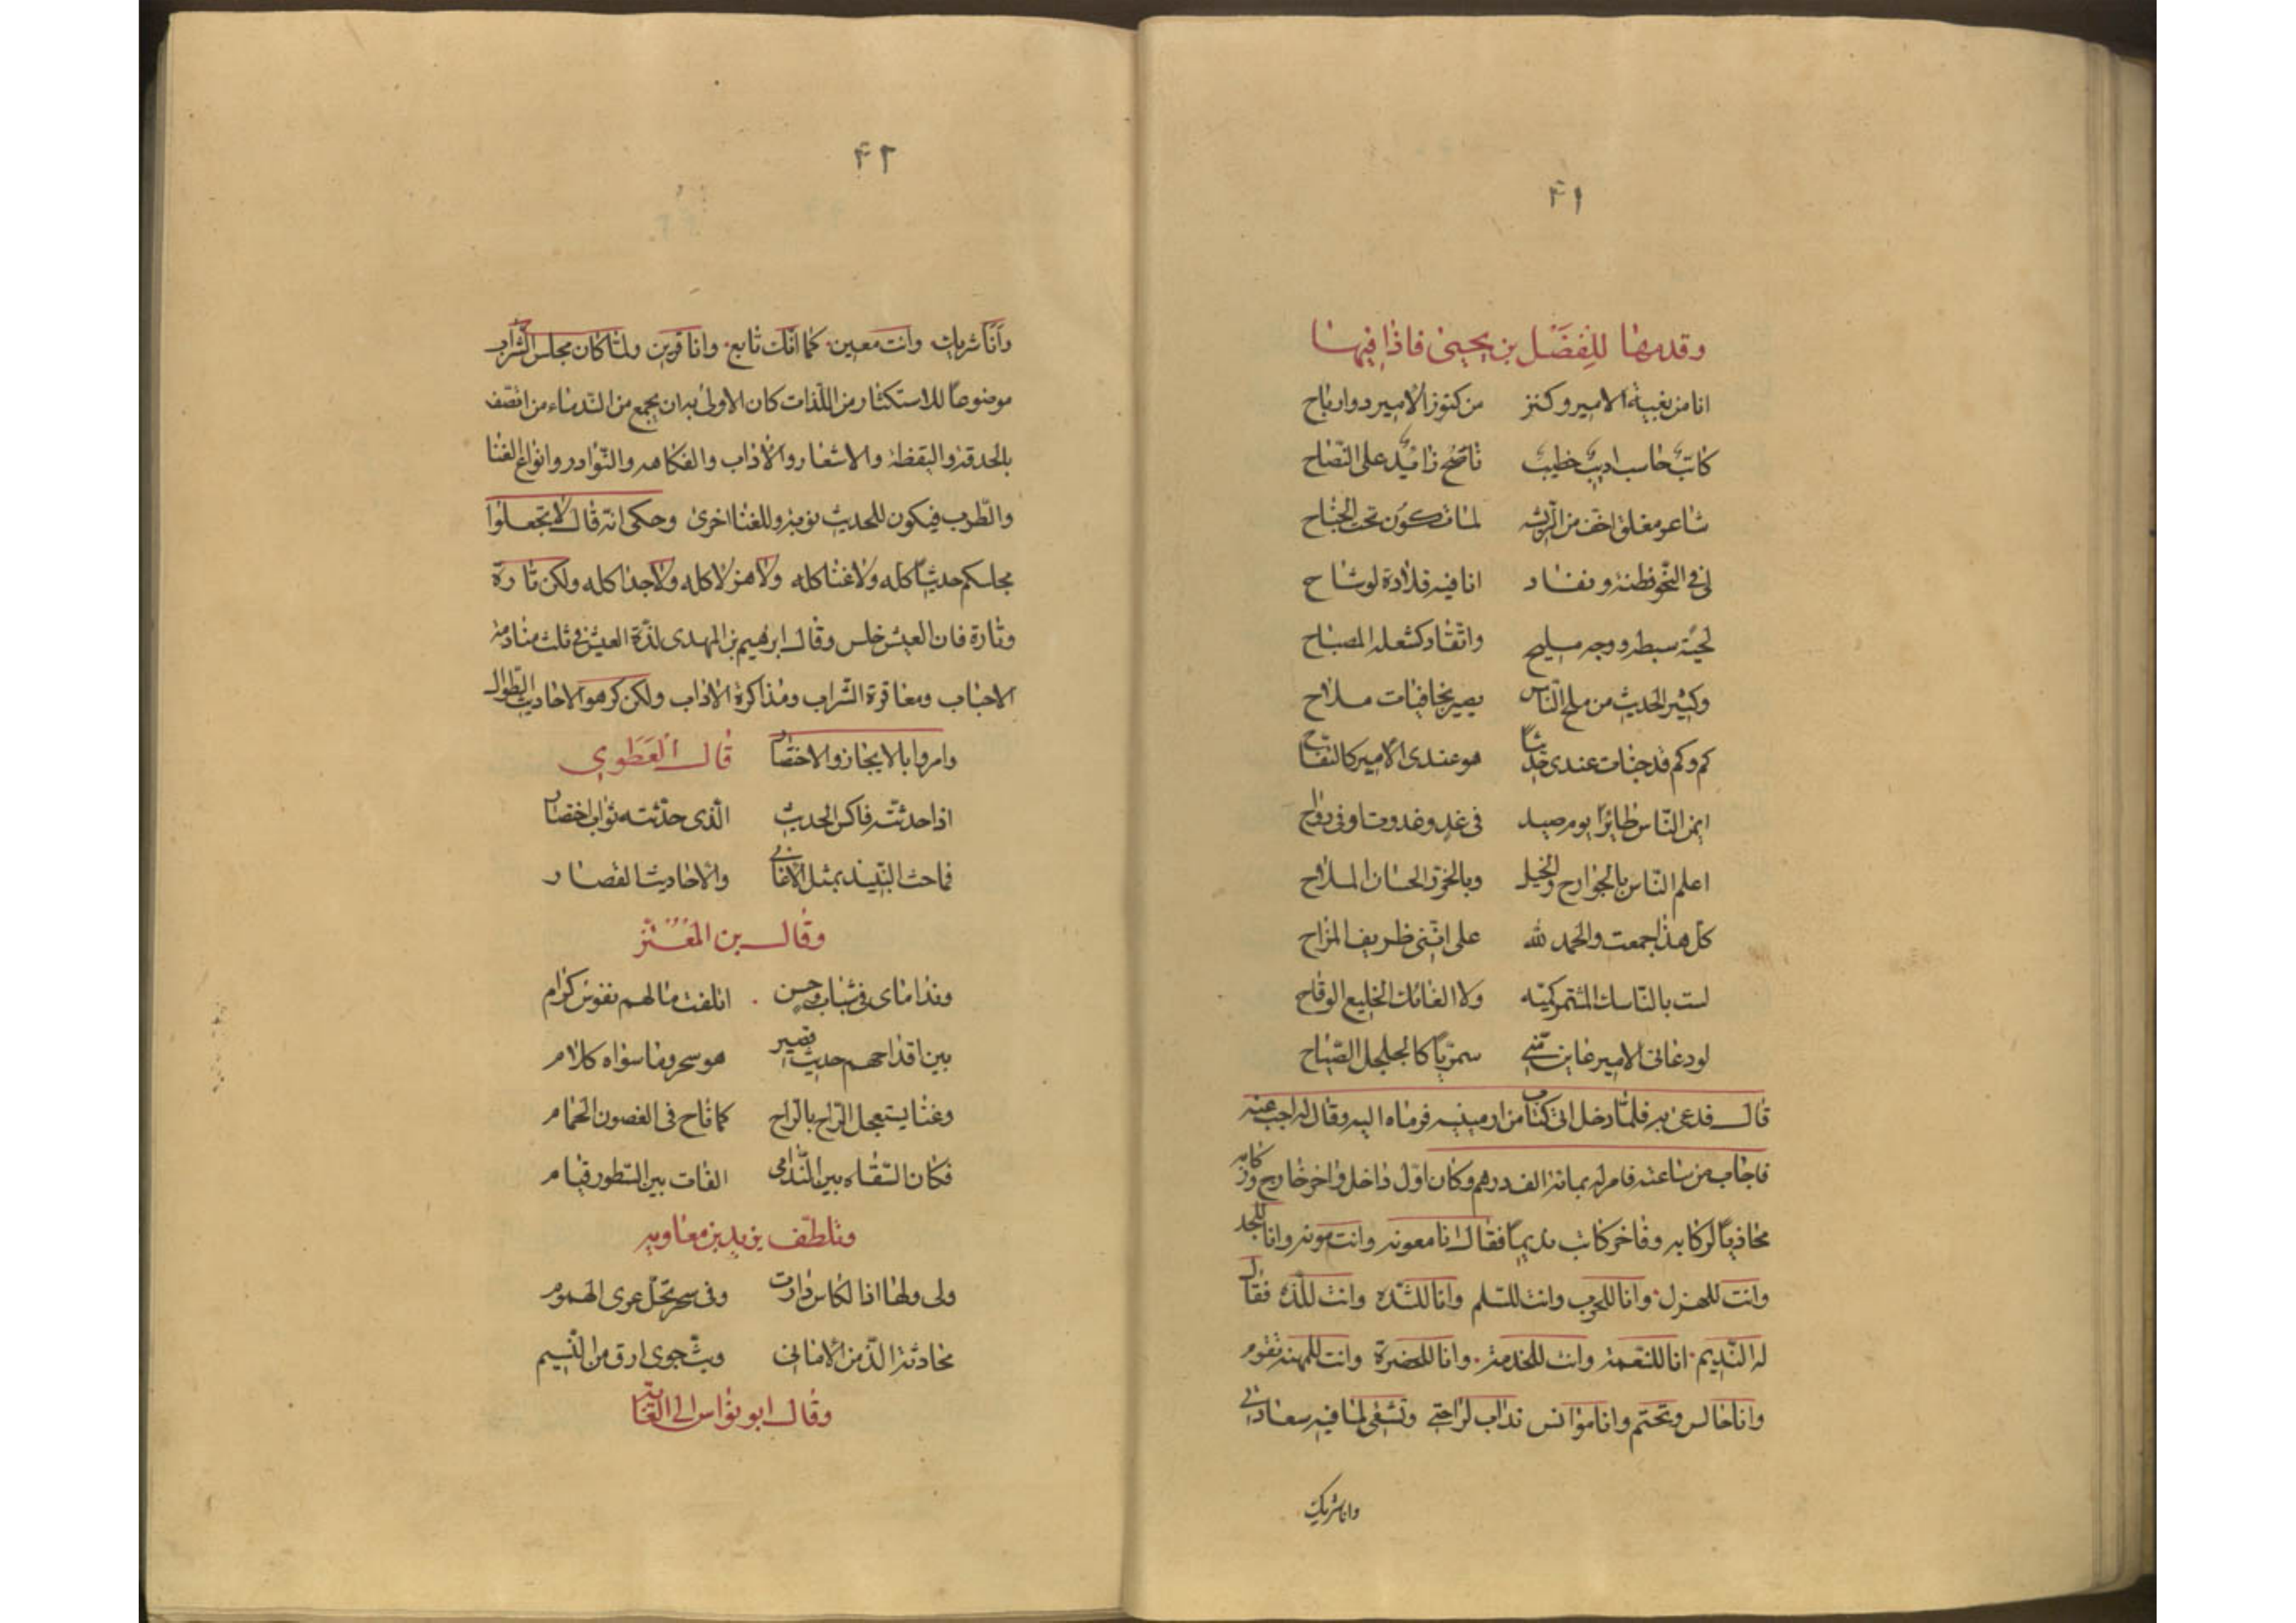 ٤١
وقدمها للفضل بن يحيى فاذا فيها
انا من بغية الامير وكنز من كنوز الامير ذو ارباح
كاتب حاسب اديب خطيب ناصح زائد على النصاح
شاعر مفلق اخف من الريشه لما تكون تحت الجناح
لى فى النحو فطنة ونفاد انا فيه قلادة لوشاح
لحية سبطه ووجه مليح واتقاد كشعلة المصباح
وكثير الحديث من ملح الناس بصير بخافيات ملاح
كم وكم قد خبات عندى حديثا هو عندى الامير كالتفاح
ايمن الناس طائرا يوم صيد فى غد وغدوت او فى رواح
اعلم الناس بالجوارح والخيل وبالخرد الحسان الملاح
كل هذا جمعت والحمد لله على اننى ظريف المزاح
لست بالناسك المشمر كميه ولا الفاتك الخليع الوقاح
لو دعانى الامير عاين منى سمريا كالجلجل الصياح
قال فدعى به فلما دخل اتى كتاب من ارمينيه فرماه اليه وقال له اجب عنه
فاجاب من ساعته فامر له بمائة الف درهم وكان اول داخل واخر خارج وركابه
محاذيا لركابه وفاخر كاتب نديما فقال انا معونه وانت مونه وانا للجد
وانت للهزل وانا للحرب وانت للسلم وانا للشده وانت للذه فقال
له النديم انا للنعمة وانت للخدمة وانا للحضرة وانت للمهنه تقوم
وانا جالس وتحتشم وانا موانس تداب لراحتى وتشقى لما فيه سعادتى
وانا شريك
٤٢
وانا شريك وانت معين كما انك تابع وانا قرين ولما كان مجلس الشراب
موضوعا للاستكثار من اللذات كان الاولى به ان يجمع من الندماء من اتصف
بالحدقة واليقظة والاشعار والاداب والفكاهه والنوادر وانواع الغنا
والطرب فيكون للحديث نوبة وللغنا اخرى وحكى انه قال لا تجعلوا
مجلسكم حديثا كله ولا غنا كله ولا هزلا كله ولا جدا كله ولكن تارة
وتارة فان العيش خلس وقال ابرهيم بن المهدى لذة العيش فى ثلث منادمة
الاحباب ومعاقرة الشراب ومذاكرة الاداب ولكن كرهوا الاحاديث الطوال
وامروا بالايجاز والاختصار قال العطوي
اذا حدثت فاكس الحديث الذى حدثته ثوب اختصار
فما حث النبيذ بمثل الاغانى والاحاديث القصار
وقال بن المعتز
ونداماى فى شباب وحسن اتلفت مالهم نفوس كرام
بين اقداحهم حديث قصير هو سحر وما سواه كلام
وغنا يستعجل الراح بالراح كما ناح فى الغصون الحمام
فكان السقاه بين الندامى الفات بين السطور قيام
وتلطف يزيد بن معاويه
ولى ولها اذا الكاس دارت وفى سحر تحل عرى الهموم
محادثة الذ من الامانى وبث جوى ارق من النسيم
وقال ابو نواس الى الغاية